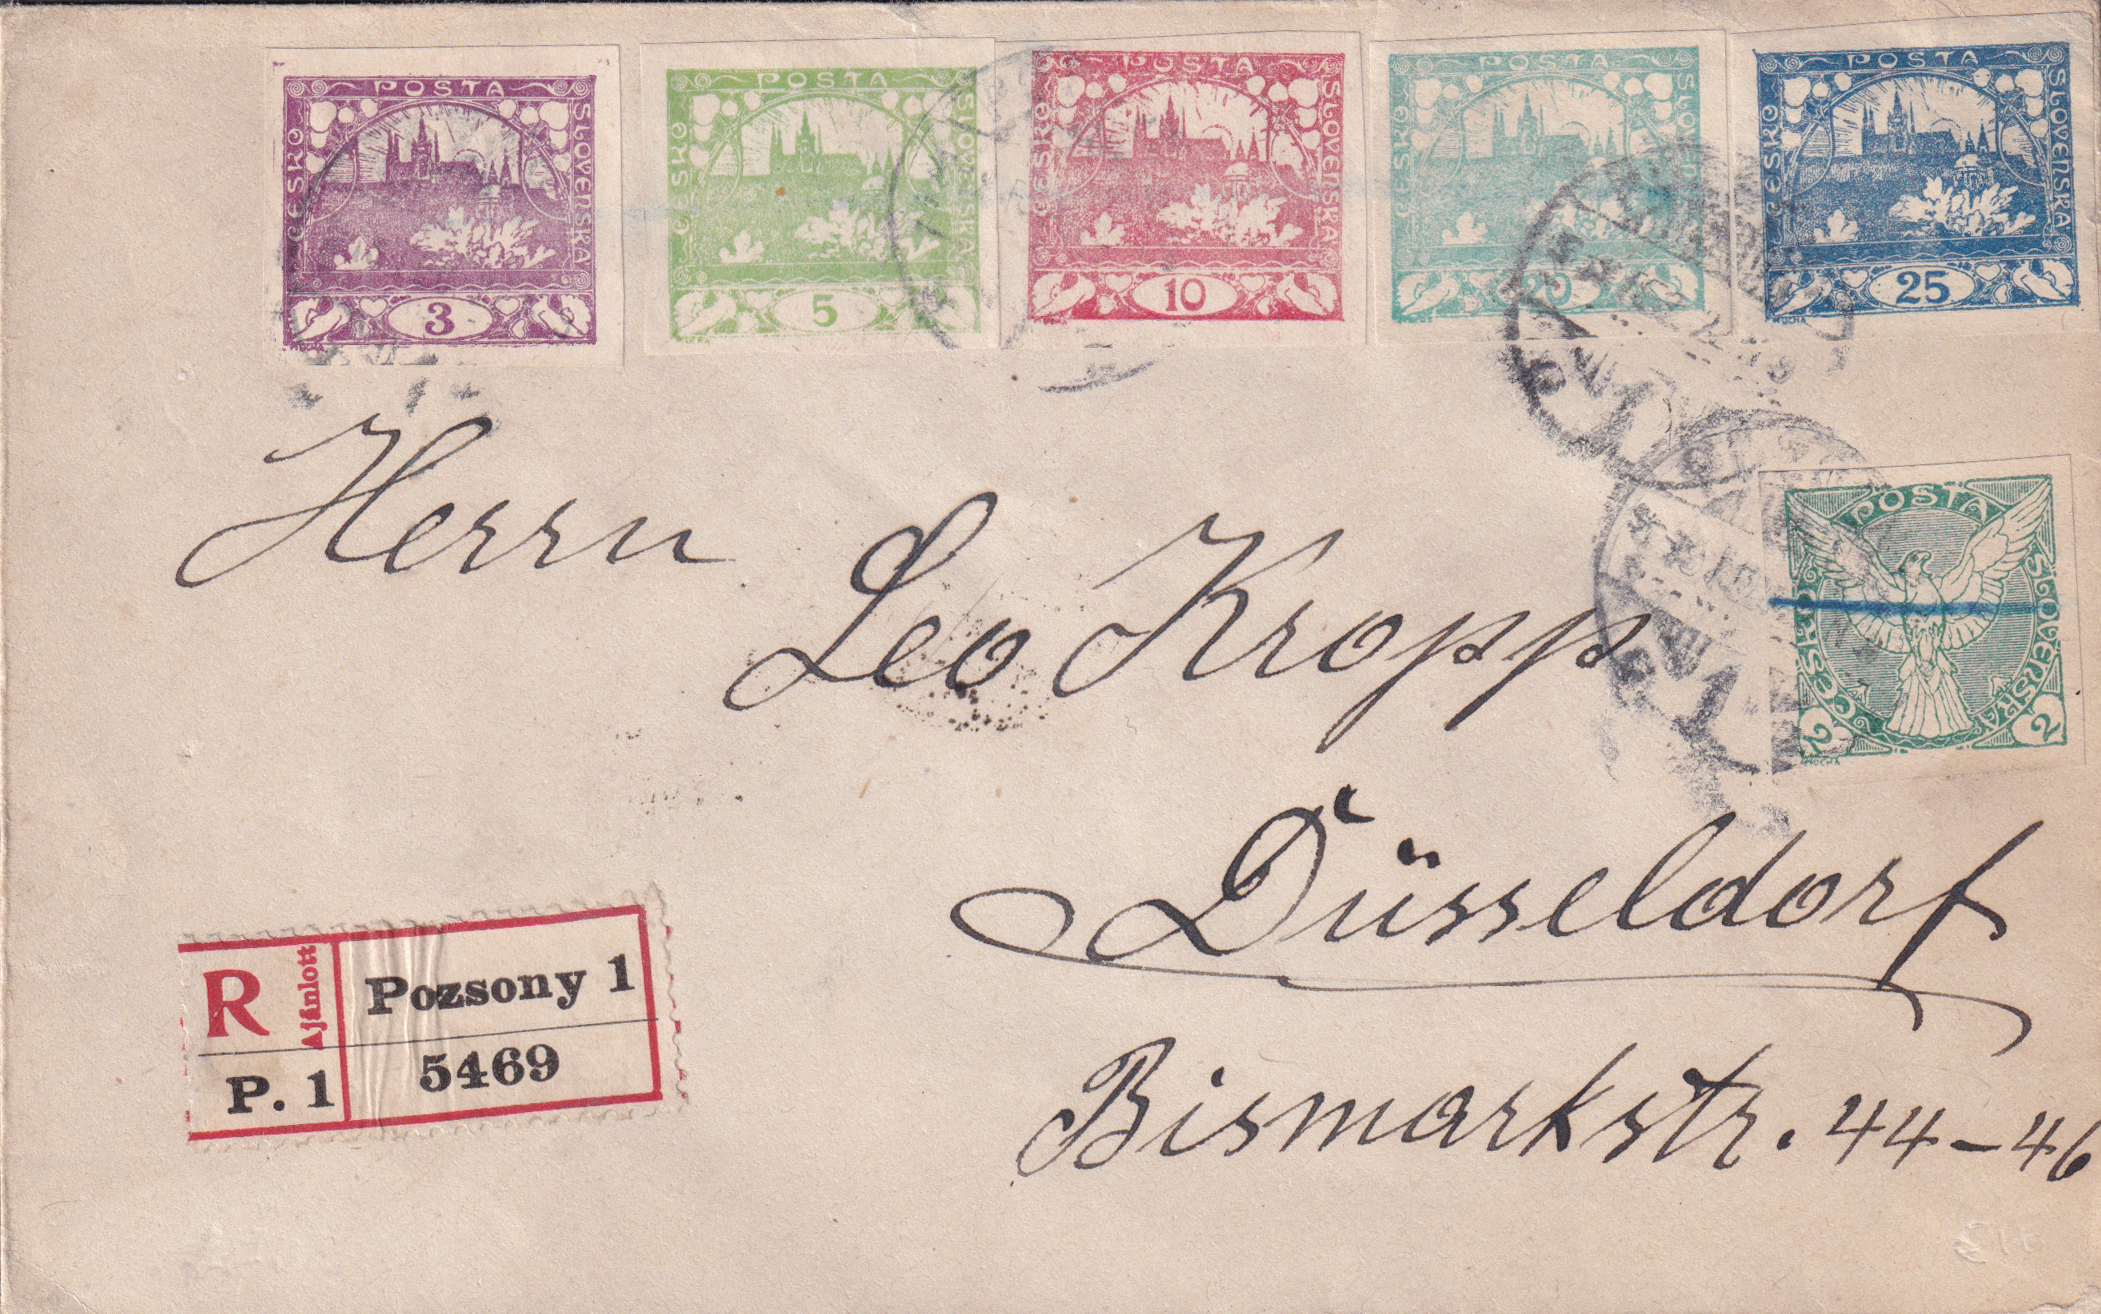 POSTA ČESKO SLOVENSKÁ 3 MUCHA
POSTA ČESKO SLOVENSKÁ 5
POSTA ČESKO SLOVENSKÁ 10 MUCHA
POSTA ČESKO SLOVENSKÁ 20
POSTA ČESKO SLOVENSKÁ 25 MUCHA
POSTA ČESKO SLOVENSKÁ 2 2 MUCHA
Herrn
Leo Kropp
Düsseldorf
Bismarkstr. 44-46
R Ajánlott Pozsony 1
P. 1 5469